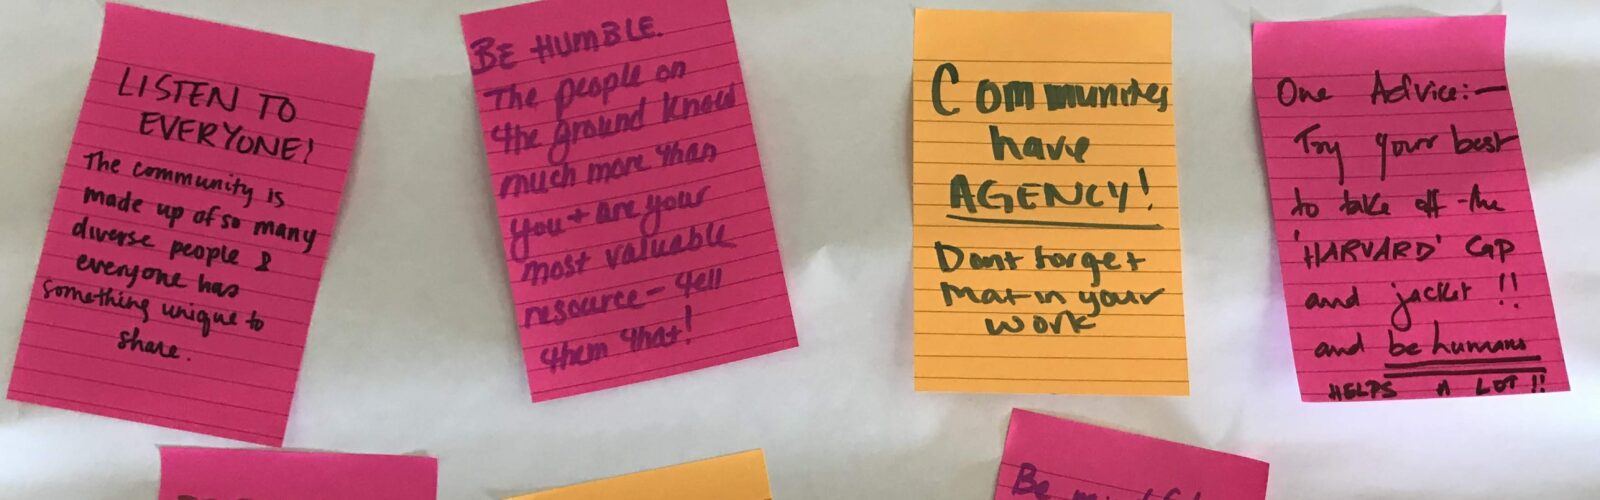 LISTEN TO
EVERYONE!
The community is
made up of so many
diverse people &
everyone has
something unique to
share.
BE HUMBLE.
The people on
the ground know
much more than
you + are your
most valuable
resource - tell
them that!
Communities
have
AGENCY!
Dont forget
that in your
work
One Advice:-
Try your best
to take off the
'HARVARD' CAP
and jacket !!
and be humans
HELPS A LOT!!
Be